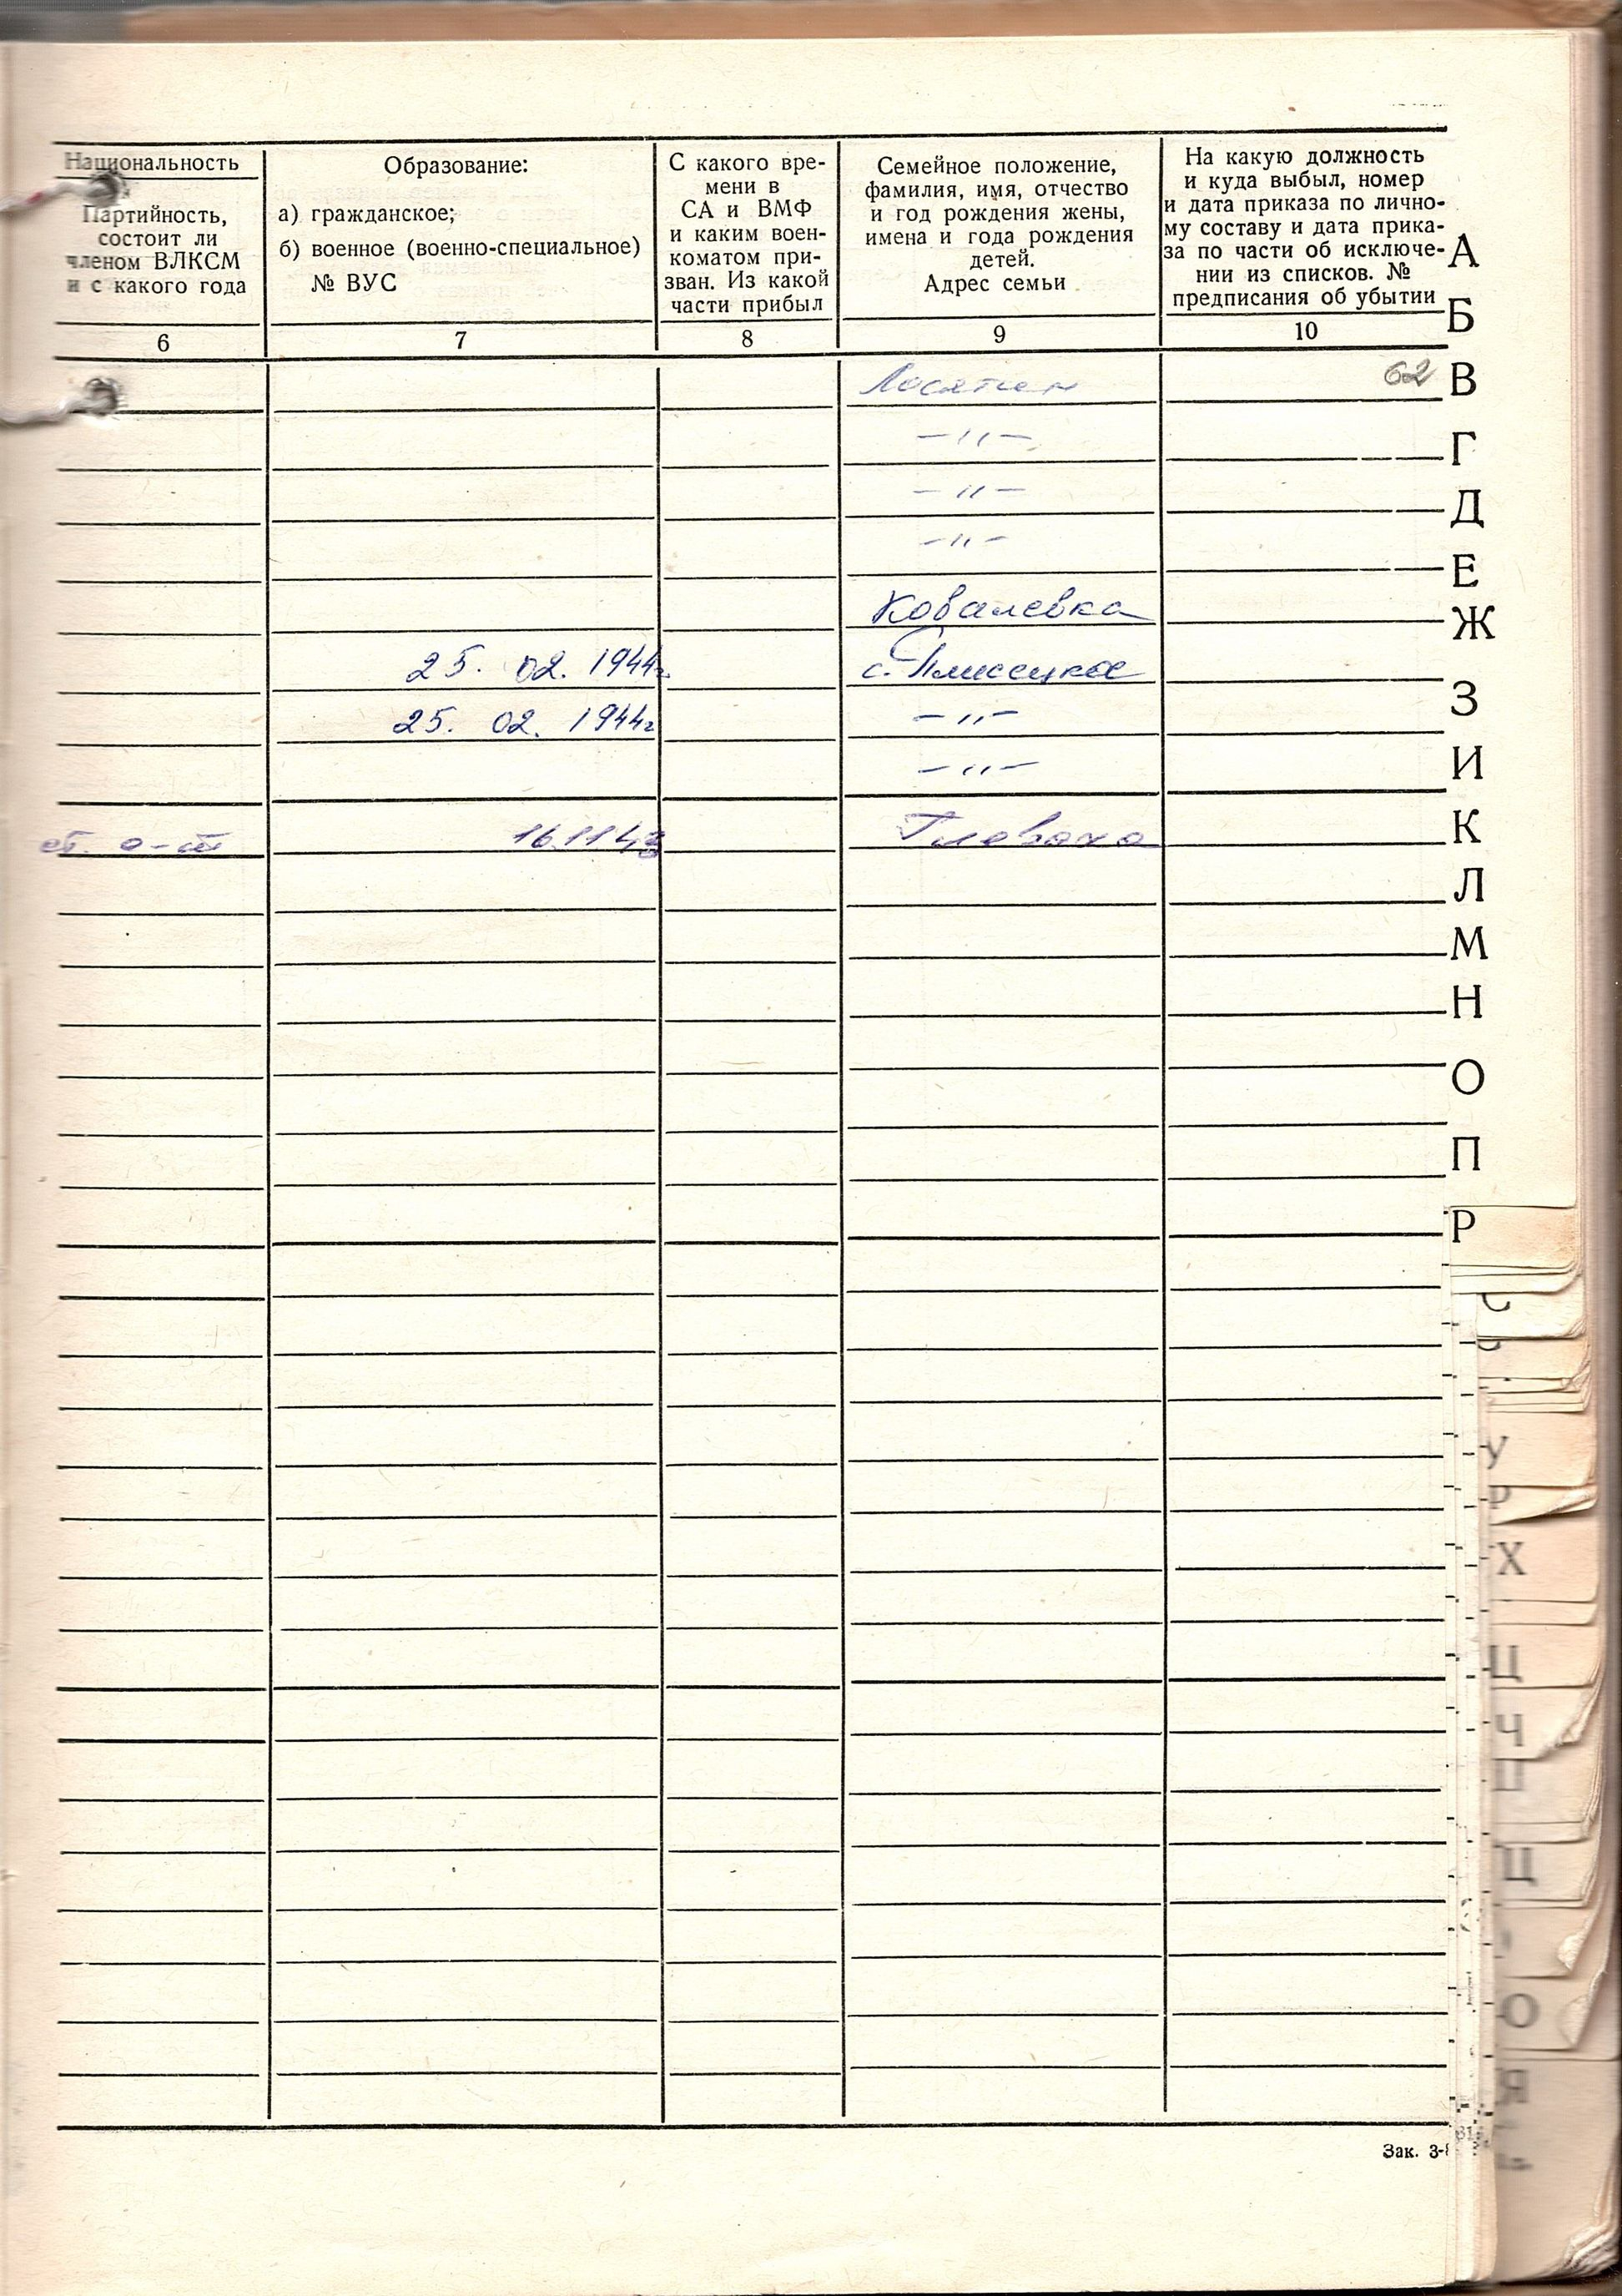 Национальность
Партийность,
состоит ли
членом ВЛКСМ
и с какого года
6
Образование:
а) гражданское;
б) военное (военно-специальное)
№ ВУС
7
С какого вре-
мени в
СА и ВМФ
и каким воен-
коматом при-
зван. Из какой
части прибыл
8
Семейное положение,
фамилия, имя, отчество
и год рождения жены,
имена и года рождения
детей.
Адрес семьи
9
На какую должность
и куда выбыл, номер
и дата приказа по лично-
му составу и дата прика-
за по части об исключе-
нии из списков. №
предписания об убытии
10
Лосятин 62
—〃—
—〃—
—〃—
Ковалевка
25. 02. 1944г. с. Плисецкое
25. 02. 1944г —〃—
—〃—
ст. о-т 16.11 43 Глеваха
А
Б
В
Г
Д
Е
Ж
З
И
К
Л
М
Н
О
П
Р
С
У
Х
Ц
Ч
Ю
Я
Зак. 3-